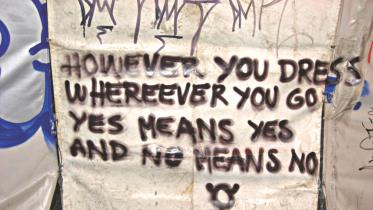 HOWEVER YOU DRESS
WHEREEVER YOU GO
YES MEANS YES
AND NO MEANS NO